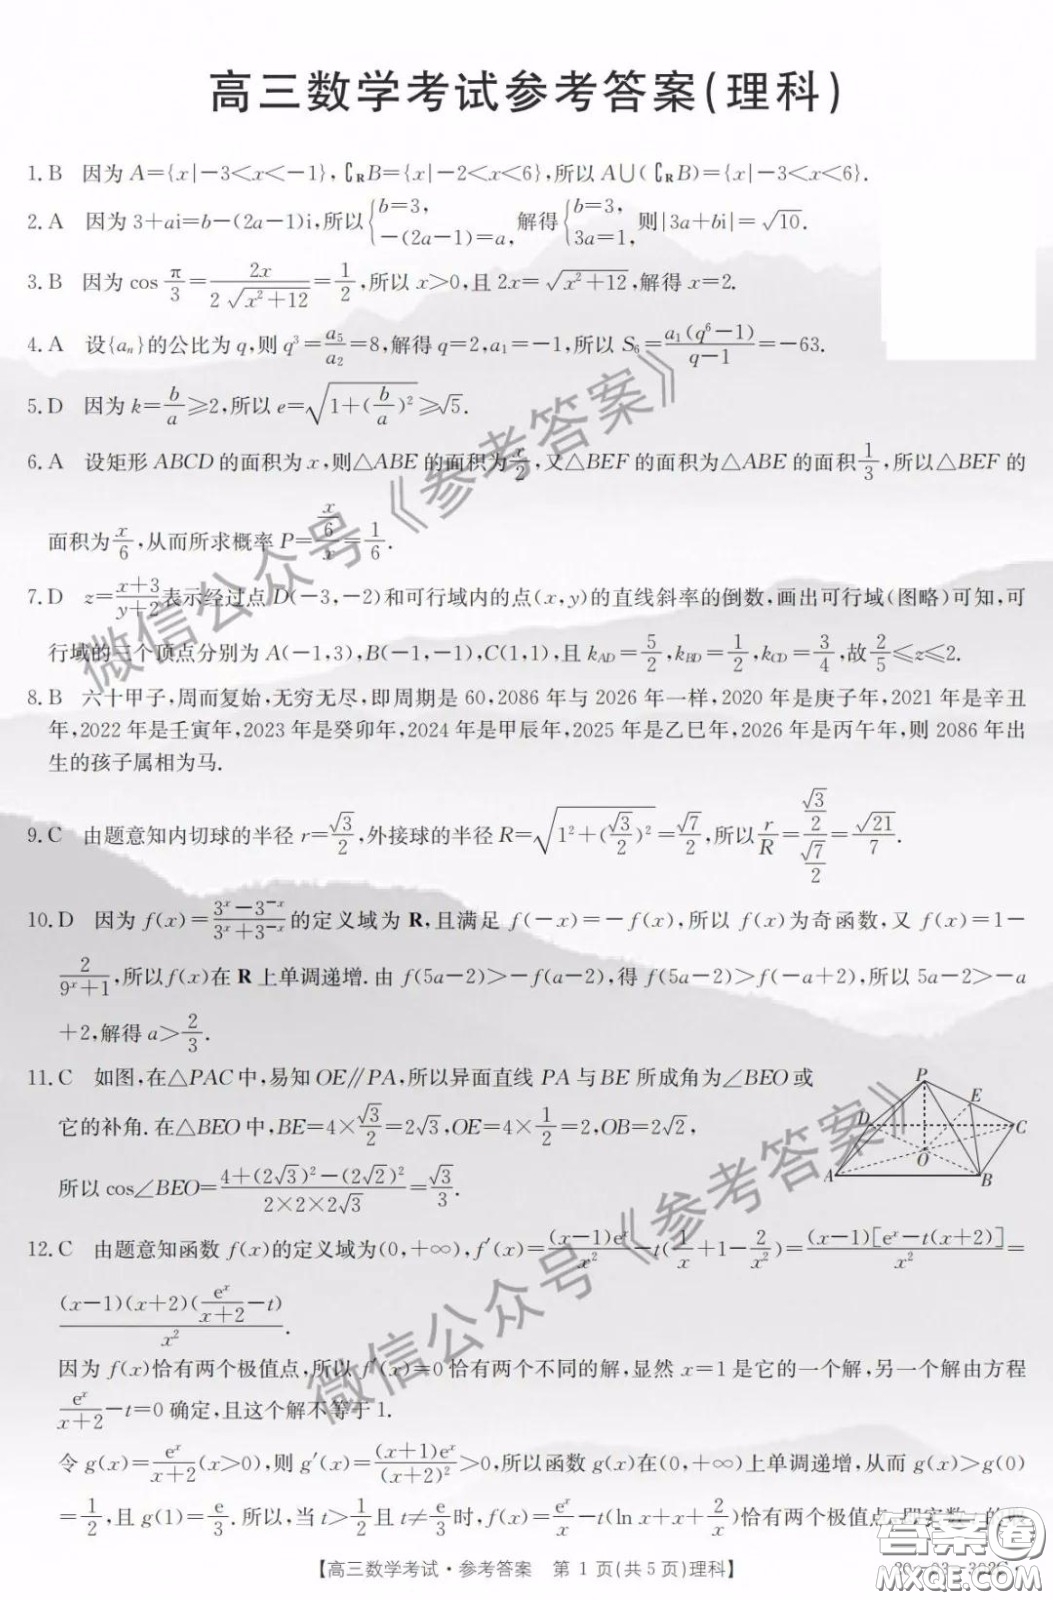 高三数学考试参考答案(理科)
1. B 因为 A={x|-3<x<-1}, ∁RB={x|-2<x<6}, 所以 A∪(∁RB)={x|-3<x<6}.
2. A 因为 3+ai=b-(2a-1)i, 所以 {b=3, -(2a-1)=a, 解得 {b=3, 3a=1, 则|3a+bi|=√10.
3. B 因为 cos π/3 = 2x/(2√(x²+12)) = 1/2, 所以 x>0, 且 2x=√(x²+12), 解得 x=2.
4. A 设{aₙ}的公比为 q, 则 q³=a₅/a₂=8, 解得 q=2, a₁=-1, 所以 S₆=a₁(q⁶-1)/(q-1)=-63.
5. D 因为 k=b/a≥2, 所以 e=√(1+(b/a)²)≥√5.
6. A 设矩形 ABCD 的面积为 x, 则△ABE 的面积为 x/2, 又△BEF 的面积为△ABE 的面积 1/3, 所以△BEF 的
面积为 x/6, 从而所求概率 P=(x/6)/x=1/6.
7. D z=(x+3)/(y+2)表示经过点 D(-3,-2)和可行域内的点(x,y)的直线斜率的倒数, 画出可行域(图略)可知, 可
行域的三个顶点分别为 A(-1,3), B(-1,-1), C(1,1), 且 k_AD=5/2, k_BD=1/2, k_CD=3/4, 故 2/5≤z≤2.
8. B 六十甲子, 周而复始, 无穷无尽, 即周期是 60, 2086 年与 2026 年一样, 2020 年是庚子年, 2021 年是辛丑
年, 2022 年是壬寅年, 2023 年是癸卯年, 2024 年是甲辰年, 2025 年是乙巳年, 2026 年是丙午年, 则 2086 年出
生的孩子属相为马.
9. C 由题意知内切球的半径 r=√3/2, 外接球的半径 R=√(1²+(√3/2)²)=√7/2, 所以 r/R=(√3/2)/(√7/2)=√21/7.
10. D 因为 f(x)=(3ˣ-3⁻ˣ)/(3ˣ+3⁻ˣ)的定义域为 R, 且满足 f(-x)=-f(x), 所以 f(x)为奇函数, 又 f(x)=1-
2/(9ˣ+1), 所以 f(x)在 R 上单调递增. 由 f(5a-2)>-f(a-2), 得 f(5a-2)>f(-a+2), 所以 5a-2>-a
+2, 解得 a>2/3.
11. C 如图, 在△PAC 中, 易知 OE∥PA, 所以异面直线 PA 与 BE 所成角为∠BEO 或
它的补角. 在△BEO 中, BE=4×√3/2=2√3, OE=4×1/2=2, OB=2√2,
所以 cos∠BEO=(4+(2√3)²-(2√2)²)/(2×2×2√3)=√3/3.
P
E
D
C
O
A
B
12. C 由题意知函数 f(x)的定义域为(0,+∞), f′(x)=(x-1)eˣ/x²-t(1/x+1-2/x²)=(x-1)[eˣ-t(x+2)]/x²=
(x-1)(x+2)(eˣ/(x+2)-t)/x².
因为 f(x)恰有两个极值点, 所以 f′(x)=0 恰有两个不同的解, 显然 x=1 是它的一个解, 另一个解由方程
eˣ/(x+2)-t=0 确定, 且这个解不等于 1.
令 g(x)=eˣ/(x+2)(x>0), 则 g′(x)=(x+1)eˣ/(x+2)²>0, 所以函数 g(x)在(0,+∞)上单调递增, 从而 g(x)>g(0)
=1/2, 且 g(1)=e/3. 所以, 当 t>1/2 且 t≠e/3 时, f(x)=eˣ/x-t(ln x+x+2/x)恰有两个极值点, 即实数 t 的取
【高三数学考试·参考答案 第 1 页(共 5 页)理科】
微信公众号《参考答案》
微信公众号《参考答案》
答案圈
MXQE.COM